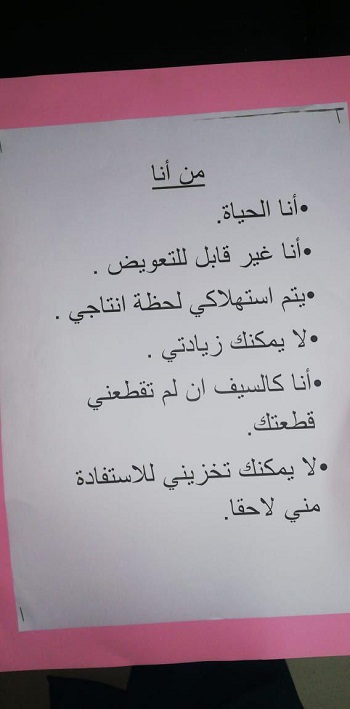 من أنا
•أنا الحياة.
•أنا غير قابل للتعويض .
•يتم استهلاكي لحظة انتاجي .
•لا يمكنك زيادتي .
•أنا كالسيف ان لم تقطعني
قطعتك.
•لا يمكنك تخزيني للاستفادة
مني لاحقا.